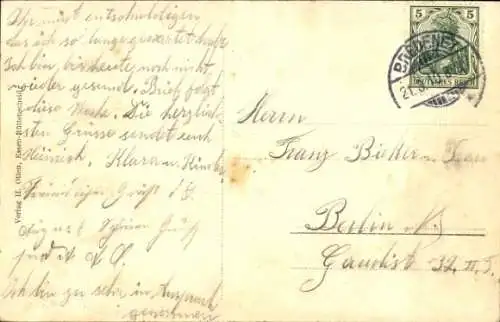 Ihr müst entschuldigen
das ich so lange gewartet habe
Ich bin, bis heute noch nicht
wieder gesund. Brief folgt
diese Woche. Die herzlich-
sten Grüsse sendet euch
Heinrich, Klara u. Kinder
August
Ich bin zu sehr in Anspruch
genommen
Verlag H. Olten, Essen-Rüttenscheid
5 5
DEUTSCHES REICH
BREDENEY
Herrn
Franz Bicker u. Frau
Berlin N.
Gaudist 32. II.